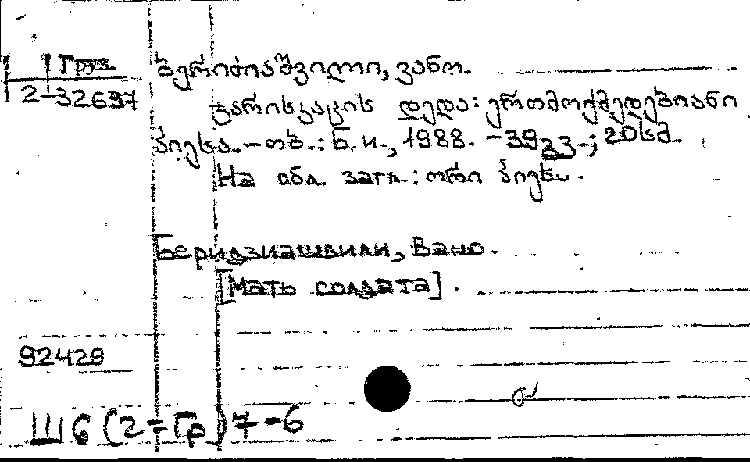 Груз
2-32697
ბერიძიაშვილი, ვანო.
ჯარისკაცის დედა: ერთმოქმედებიანი
პიესა. - თბ.: Б.и., 1988. - 39გვ.; 20სმ.
На обл. загл.: ორი პიესა.
Беридзиашвили, Вано.
[Мать солдата].
92428
Ш6(2=Гр)7-6